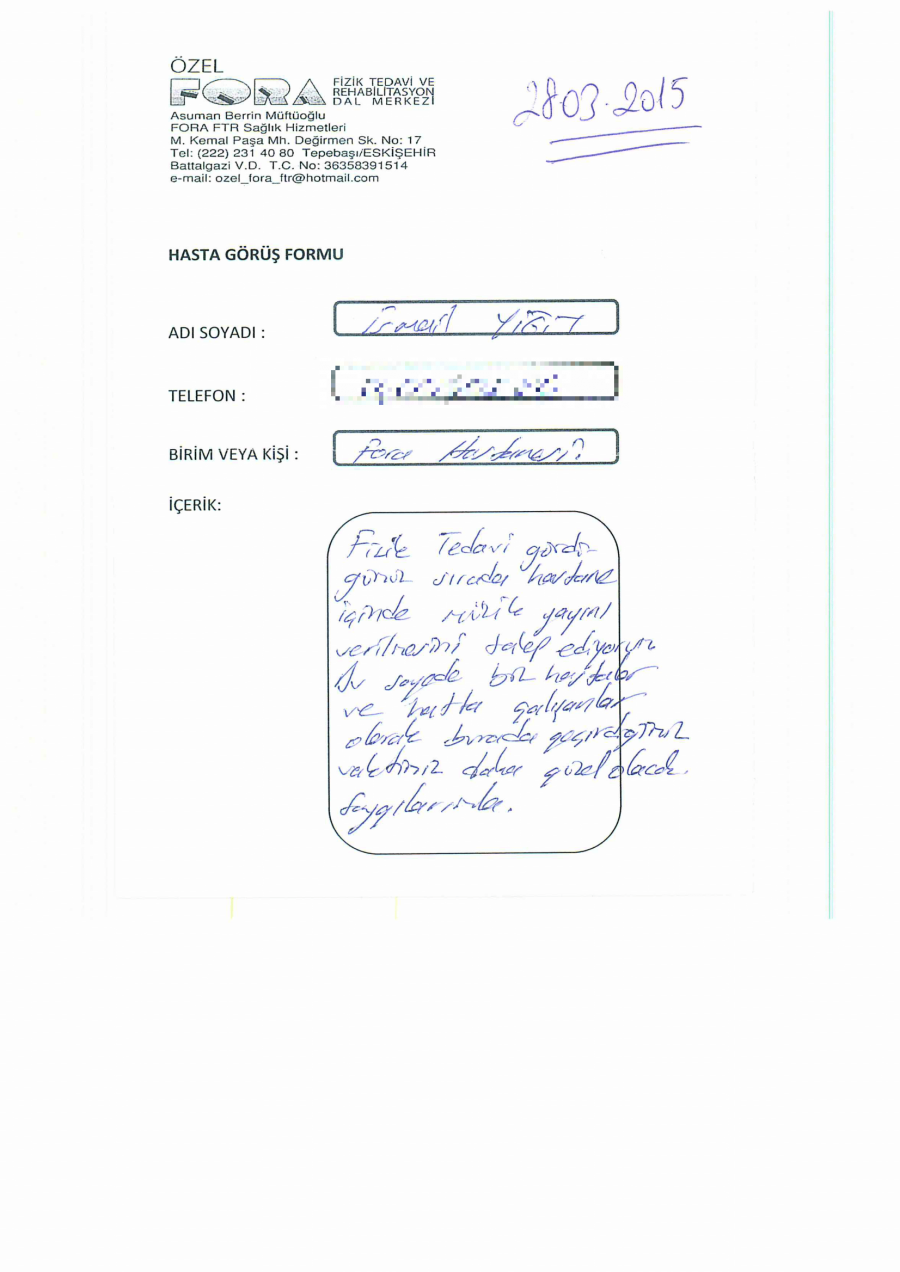 ÖZEL
FORA FİZİK TEDAVİ VE
REHABİLİTASYON
DAL MERKEZİ
28.03.2015
Asuman Berrin Müftüoğlu
FORA FTR Sağlık Hizmetleri
M. Kemal Paşa Mh. Değirmen Sk. No: 17
Tel: (222) 231 40 80 Tepebaşı/ESKİŞEHİR
Battalgazi V.D. T.C. No: 36358391514
e-mail: ozel_fora_ftr@hotmail.com
HASTA GÖRÜŞ FORMU
ADI SOYADI : İsmail YİĞİT
TELEFON :
BİRİM VEYA KİŞİ : Fora Hastanesi
İÇERİK:
Fizik Tedavi gördü-
ğümüz sırada hastane
içinde müzik yayını
verilmesini talep ediyorum
Bu sayede biz hastalar
ve hatta çalışanlar
olarak burada geçirdiğimiz
vaktimiz daha güzel olacak.
Saygılarımla.